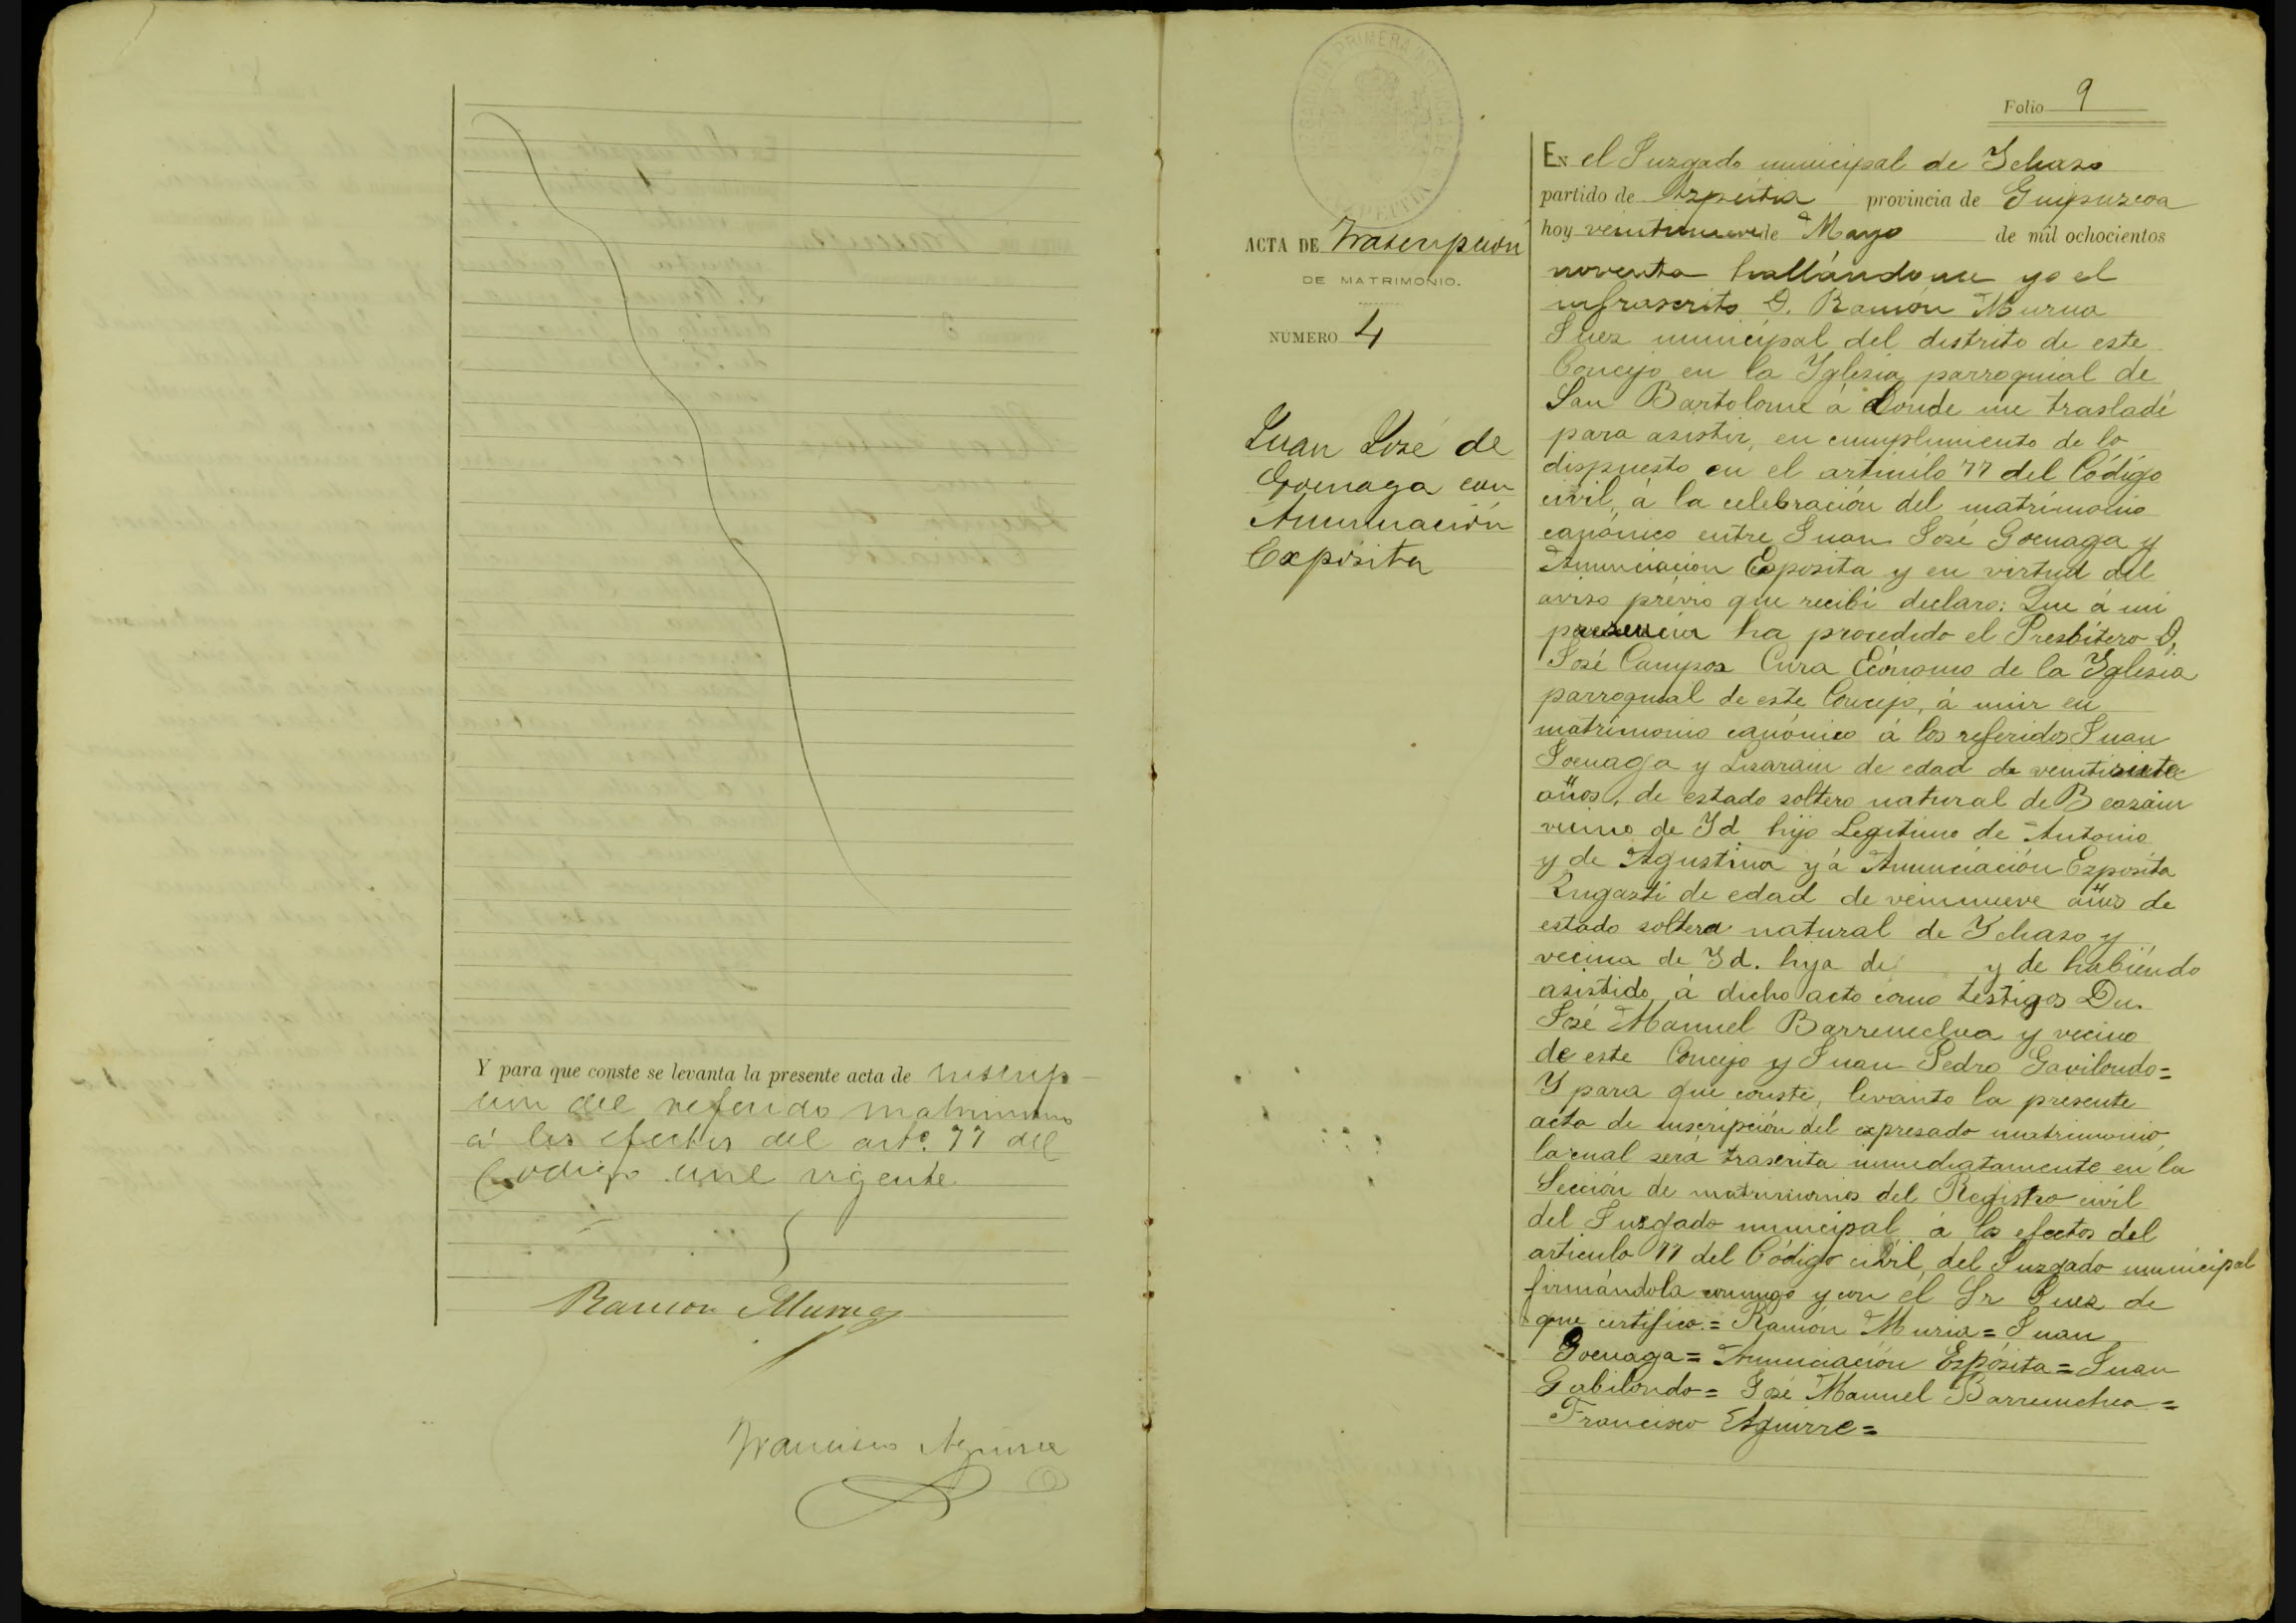 Y para que conste se levanta la presente acta de inscrip-
cion del referido matrimonio
á los efectos del artº. 77 del
Codigo civil vigente
Ramon Murua
Francisco Aguirre
JUZGADO DE PRIMERA INSTANCIA DE AZPEITIA
Folio 9
ACTA DE Trascripción
DE MATRIMONIO.
NÚMERO 4
Juan José de
Goenaga con
Anunciación
Expósita
En el Juzgado municipal de Ychaso
partido de Azpeitia provincia de Guipuzcoa
hoy veintinueve de Mayo de mil ochocientos
noventa hallándome yo el
infrascrito D. Ramón Murua
Juez municipal del distrito de este
Concejo en la Yglesia parroquial de
San Bartolomé á Donde me trasladé
para asistir, en cumplimiento de lo
dispuesto en el articulo 77 del Código
civil, á la celebración del matrimonio
canónico entre Juan José Goenaga y
Anunciación Esposita y en virtud del
aviso previo que recibí declaro: Que á mi
presencia ha procedido el Presbítero D,
José Campos Cura Ecónomo de la Yglesia
parroquial de este Concejo, á unir en
matrimonio canónico á los referidos Juan
Goenaga y de edad de veintisiete
años, de estado soltero natural de Beasain
vecino de Yd hijo Legitimo de Antonio
y de Agustina y á Anunciación Esposita
de edad de veinnueve años de
estado soltera natural de Ychaso y
vecina de Yd. hija de y de habiendo
asistido á dicho acto como testigos Dn.
José Manuel Barrenechea y vecino
de este Concejo y Juan Pedro Gavilondo=
Y para que conste, levanto la presente
acta de inscripción del expresado matrimonio
la cual será trascrita inmediatamente en la
Sección de matrimonios del Registro civil
del Juzgado municipal á los efectos del
articulo 77 del Código civil, del Juzgado municipal
firmándola conmigo y con él Sr Juez de
que certifico.= Ramón Muria= Juan
Goenaga= Anunciación Espósita= Juan
Gabilondo= José Manuel Barrenechea=
Francisco Aguirre=